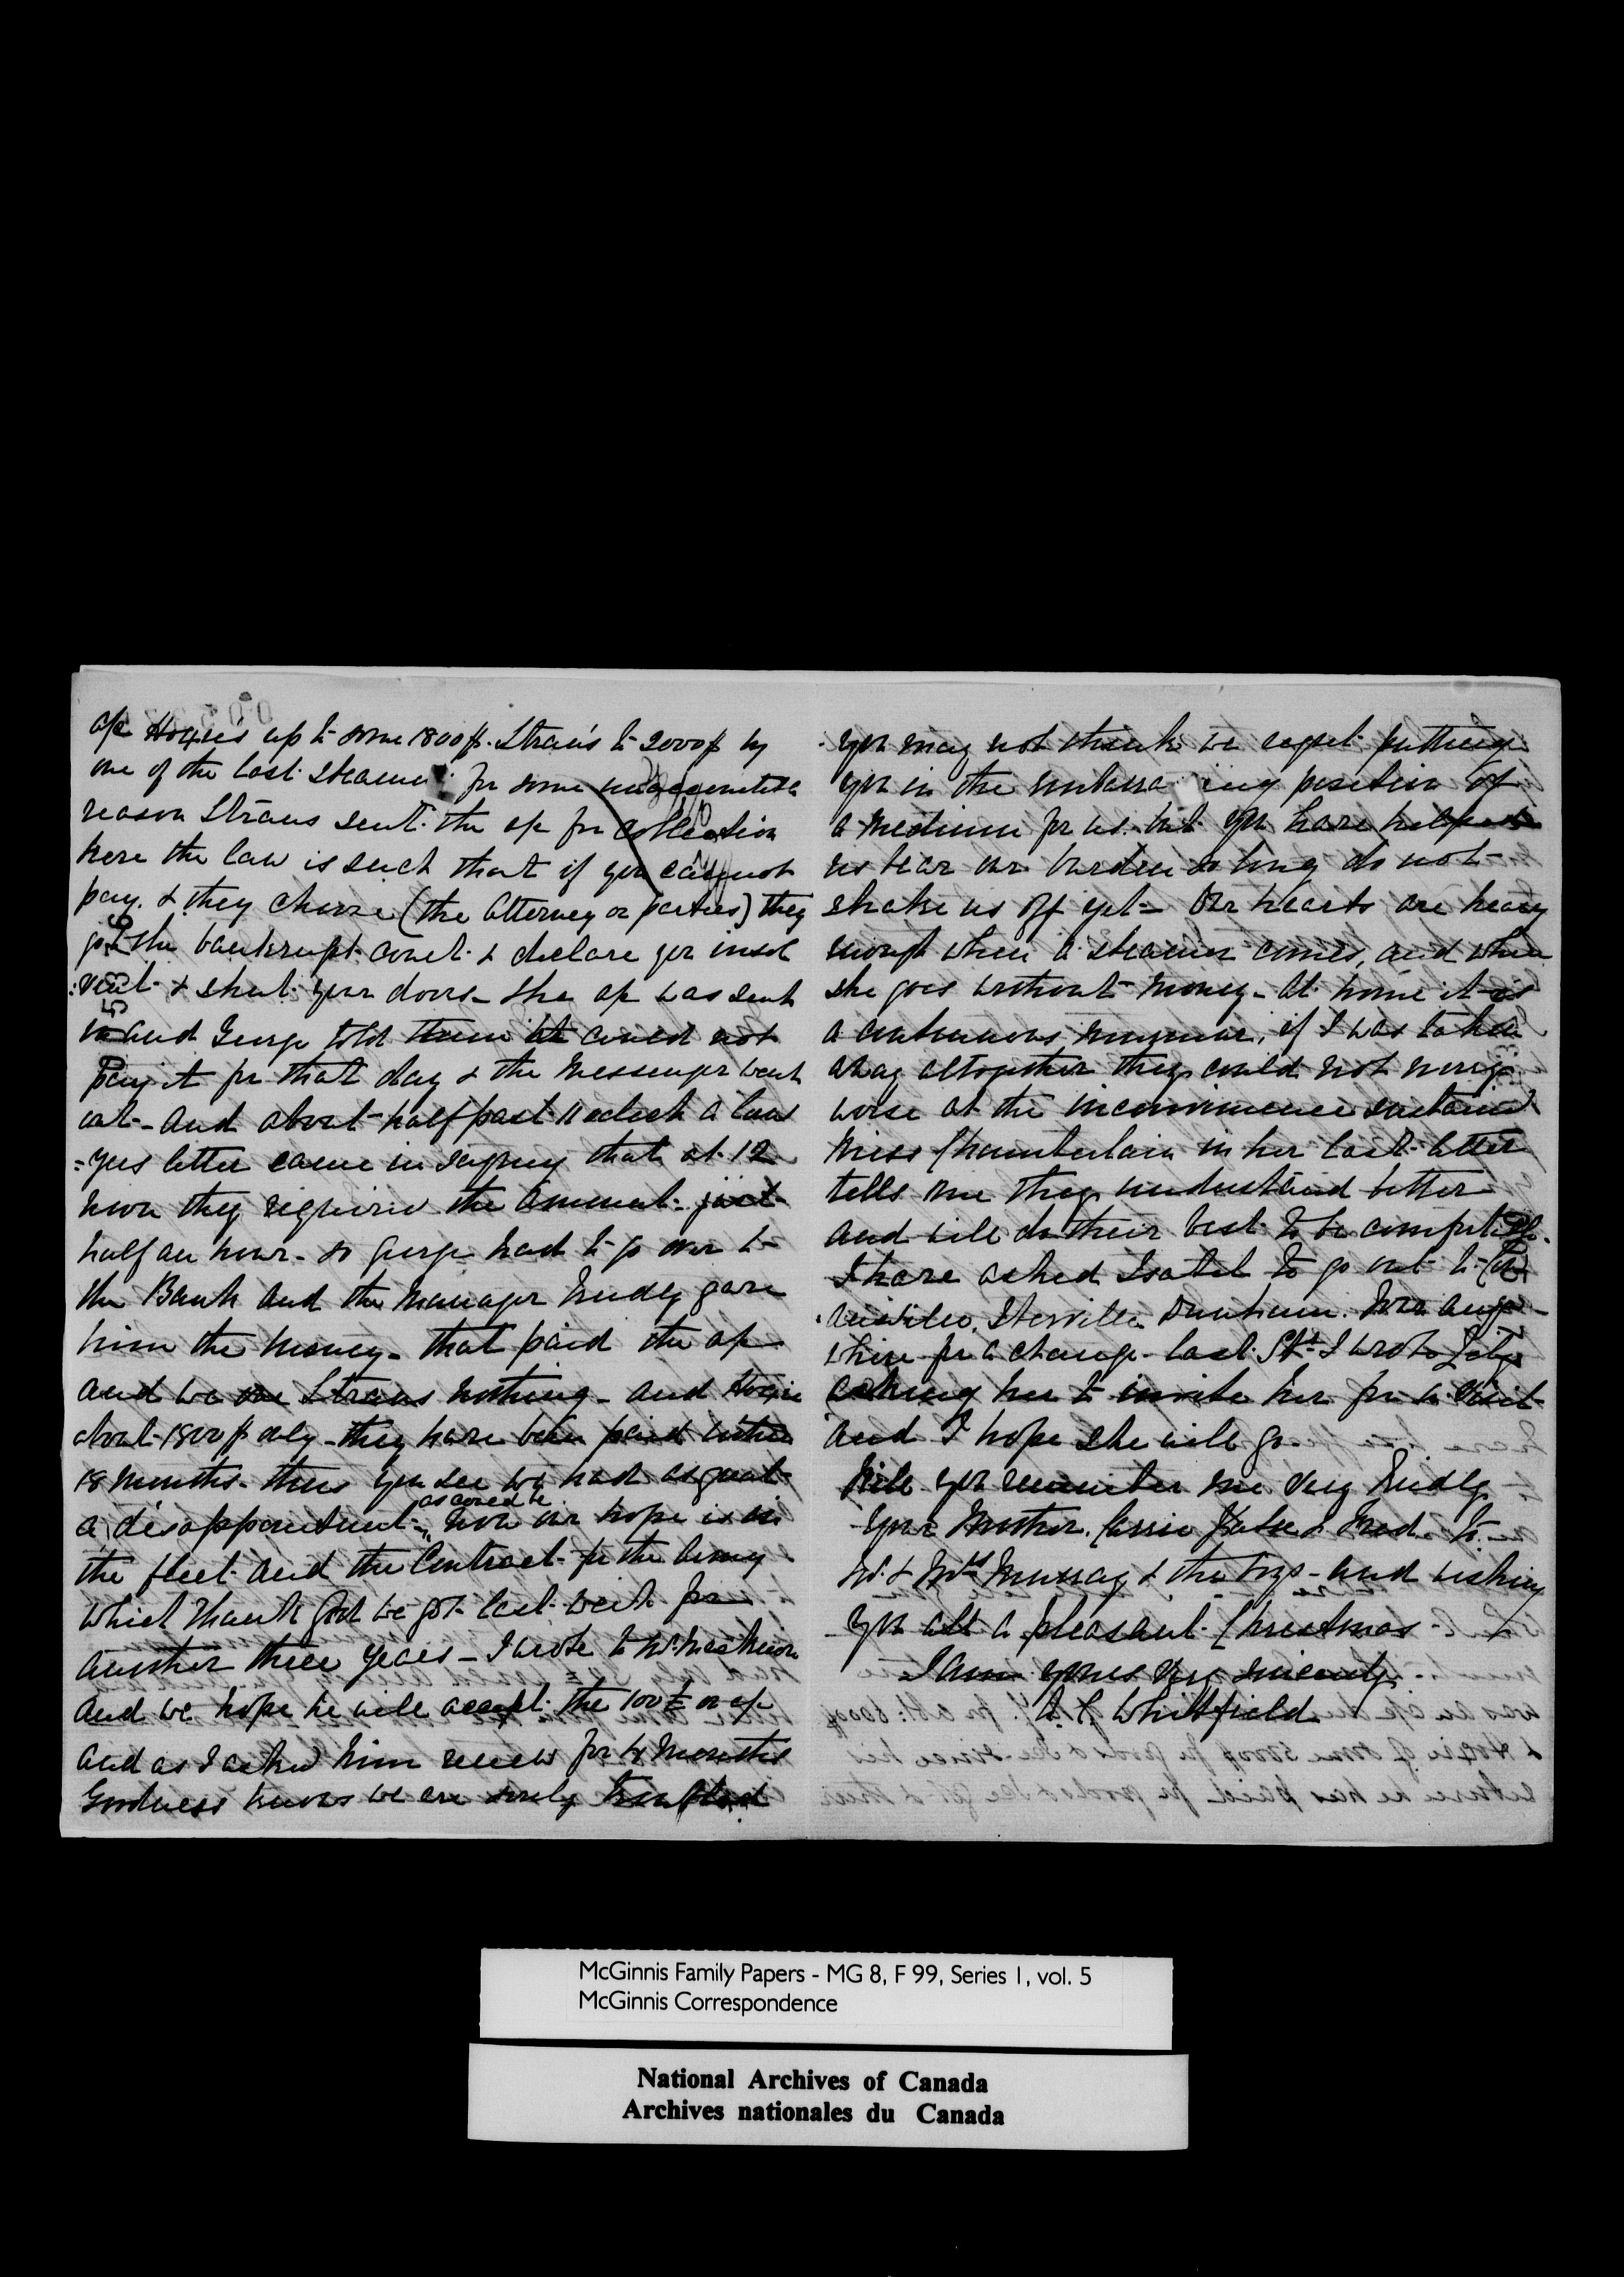 a/c Hogie's up to some 1800$. Straus to 2000$ by
one of the last steamer for some
reason Straus sent the a/c for collection
here the law is such that if you cannot
pay. & they choose (the Attorney or parties) they
go to the bankrupt court & declare you insol
:vent & shut your doors - the a/c was sent
in and George told them he could not
pay it for that day & the Messenger went
out - and about half past 11 oclock a law
=yers letter came in saying that at 12
noon they required the amount - just
half an hour - so George had to go over to
the Bank and the Manager kindly gave
him the money - that paid the a/c
and we owe Straus nothing - and Hogie
about 1800$ only - they have been paid within
18 months - thus you see we had as great
a disappointment as could be now our hope is in
the fleet and the Contract for the Army
which thank God we got last week for
another three years - I wrote to Mr.
and we hope he will accept the 100£ on a/c
and as I asked him renew for months
Goodness knows we are sorely troubled
you may not think we regret putting
you in the embarra ing position of
a medium for us. but you have helped
us bear our burden so long do not
shake us off yet = Our hearts are heavy
enough when a steamer comes, and when
she goes without money - at home it is
a continuous murmur, if I was taken
away altogether they could not
worse at the inconvenience sustained
Miss Chamberlain in her last letter
tells me they understand better
and will do their best to be comfortable.
I have asked Isabel to go out to
Iberville Dunham. or any
where for a change - last I wrote
asking her to invite her for a visit
and I hope she will go -
Will you remember me very kindly
Your Mother. & Fred. to
Mr. & Mrs Murray & the boys - and wishing
you all a pleasant Christmas -
I am yours very sincerely
A. C. Whitfield
McGinnis Family Papers - MG 8, F 99, Series 1, vol. 5
McGinnis Correspondence
National Archives of Canada
Archives nationales du Canada